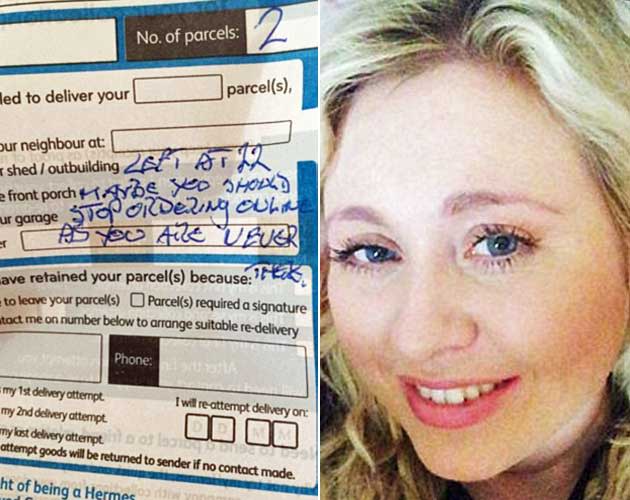 No. of parcels: 2
led to deliver your parcel(s),
our neighbour at:
r shed / outbuilding LEFT AT 22
e front porch MAYBE YOU SHOULD
ur garage STOP ORDERING ONLINE
er AS YOU ARE NEVER
ave retained your parcel(s) because: THERE.
to leave your parcel(s) Parcel(s) required a signature
tact me on number below to arrange suitable re-delivery
Phone:
my 1st delivery attempt. I will re-attempt delivery on:
my 2nd delivery attempt. D D M M
my last delivery attempt.
attempt goods will be returned to sender if no contact made.
ht of being a Hermes